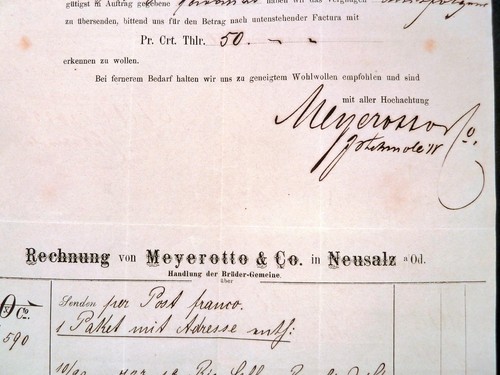 gütigst in Auftrag gegebene haben wir das Vergnügen
zu übersenden, bittend uns für den Betrag nach untenstehender Factura mit
Pr. Crt. Thlr. 50. — „
erkennen zu wollen.
Bei fernerem Bedarf halten wir uns zu geneigtem Wohlwollen empfohlen und sind
mit aller Hochachtung
Meyerotto & Co.
Rechnung von Meyerotto & Co. in Neusalz a/Od.
Handlung der Brüder-Gemeine.
über
Co
Senden per Post franco.
590
1 Paket mit Adresse enth: